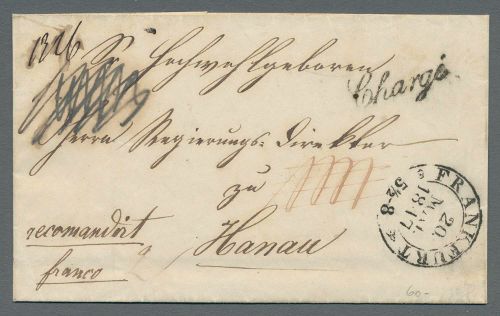 1326
Sr Hochwohlgeboren
Chargé.
Herrn Regierungs-Direktor
zu
Hanau
recomandirt
franco
FRANKFURT
20.
MAI
1847
5½-8
60-